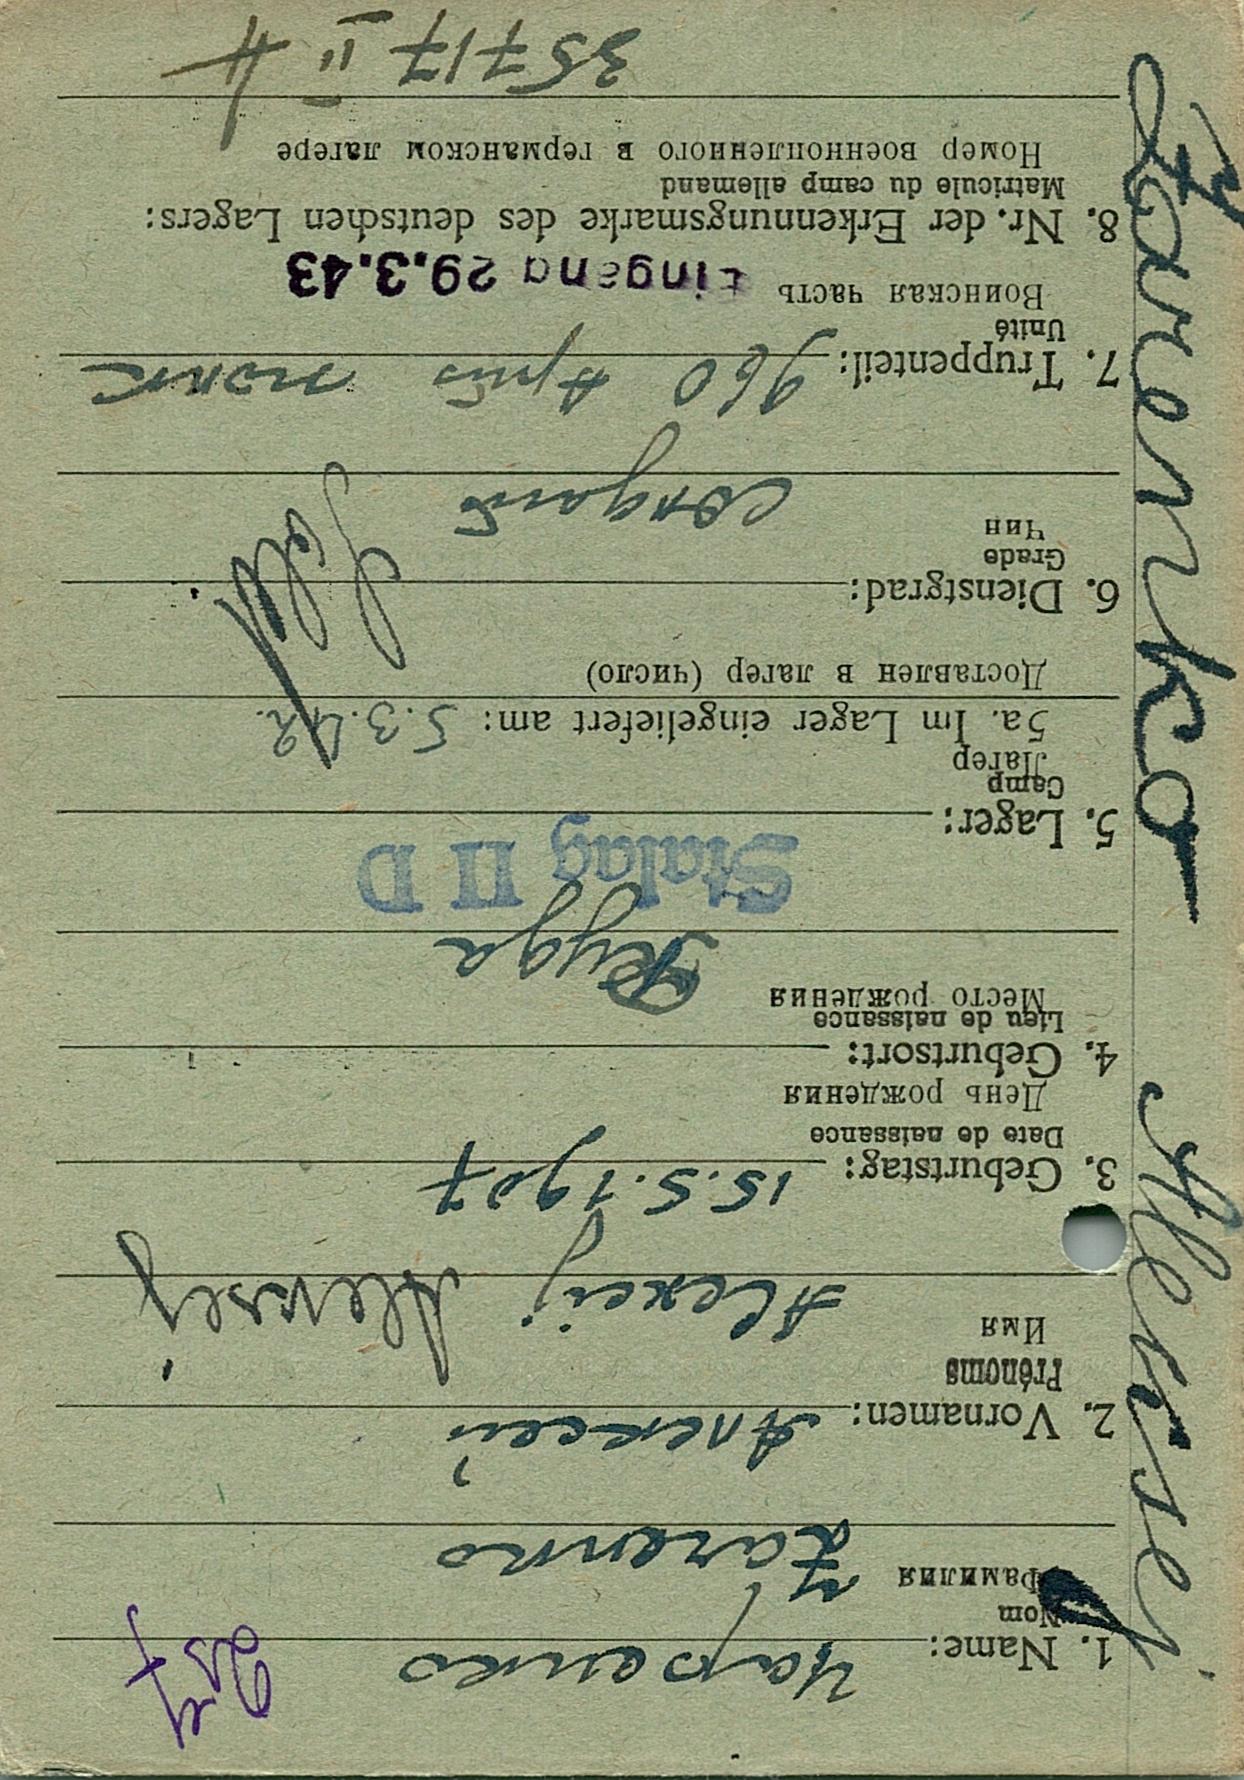 1. Name: Царенко
Nom
Фамилия Zarenko
2. Vornamen: Алексей
Prénoms
Имя Alexeij Aleksej
3. Geburtstag: 15.5.1907
Date de naissance
День рождения
4. Geburtsort:
Lieu de naissance
Место рождения
5. Lager: Stalag II D
Camp
Лагерь
5a. Im Lager eingeliefert am: 5.3.42.
Доставлен в лагер (число)
6. Dienstgrad:
Grade
Чин
7. Truppenteil: 960 полк
Unité
Воинская часть Eingang 29.3.43
8. Nr. der Erkennungsmarke des deutschen Lagers:
Matricule du camp allemand
Номер военнопленного в германском лагере
35717 II A
Zarenko Aleksej